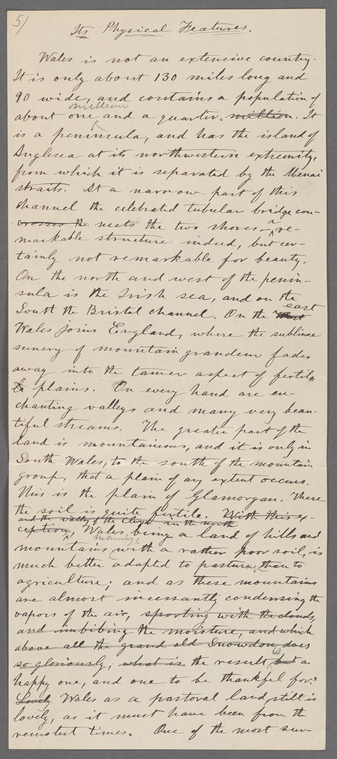 5)
Its Physical Features.
Wales is not an extensive country.
It is only about 130 miles long and
90 wide, and contains a population of
million
about one and a quarter million. It
is a peninsula, and has the island of
Anglesea at its northwestern extremity,
from which it is separated by the Menai
straits. At a narrow part of this
channel the celebrated tubular bridge con-
nects the two shores - a re-
markable structure indeed, but cer-
tainly not remarkable for beauty.
On the north and west of the penin-
sula is the Irish sea, and on the
South the Bristol channel. On the east
Wales joins England, where the sublime
scenery of mountain grandeur fades
away into the tamer aspect of fertile
plains. On every hand are en-
chanting valleys and many very beau-
tiful streams. The greater part of the
land is mountainous, and it is only in
South Wales, to the south of the mountain
group, that a plain of any extent occurs.
This is the plain of Glamorgan. There
the soil is quite fertile. With this ex-
and the valley of the Clwyd in the north
ception, Wales being a land of hills and
mainly
mountains with a rather poor soil, is
much better adapted to pasture, than to
agriculture; and as these mountains
are almost incessantly condensing the
vapors of the air, sporting with the clouds,
and imbibing the moisture, and which
above all the grand old Snowdon does
so gloriously, what is the result, but a
happy one, and one to be thankful for?
Lovely Wales as a pastoral land still is
lovely, as it must have been from the
remotest times. One of the most sur-